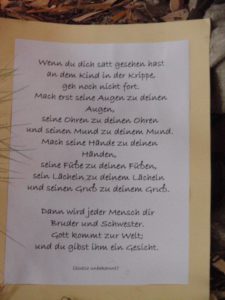 Wenn du dich satt gesehen hast
an dem Kind in der Krippe,
geh noch nicht fort.
Mach erst seine Augen zu deinen
Augen,
seine Ohren zu deinen Ohren
und seinen Mund zu deinem Mund.
Mach seine Hände zu deinen
Händen,
seine Füße zu deinen Füßen,
sein Lächeln zu deinem Lächeln
und seinen Gruß zu deinem Gruß.
Dann wird jeder Mensch dir
Bruder und Schwester.
Gott kommt zur Welt;
und du gibst ihm ein Gesicht.
unbekannt)